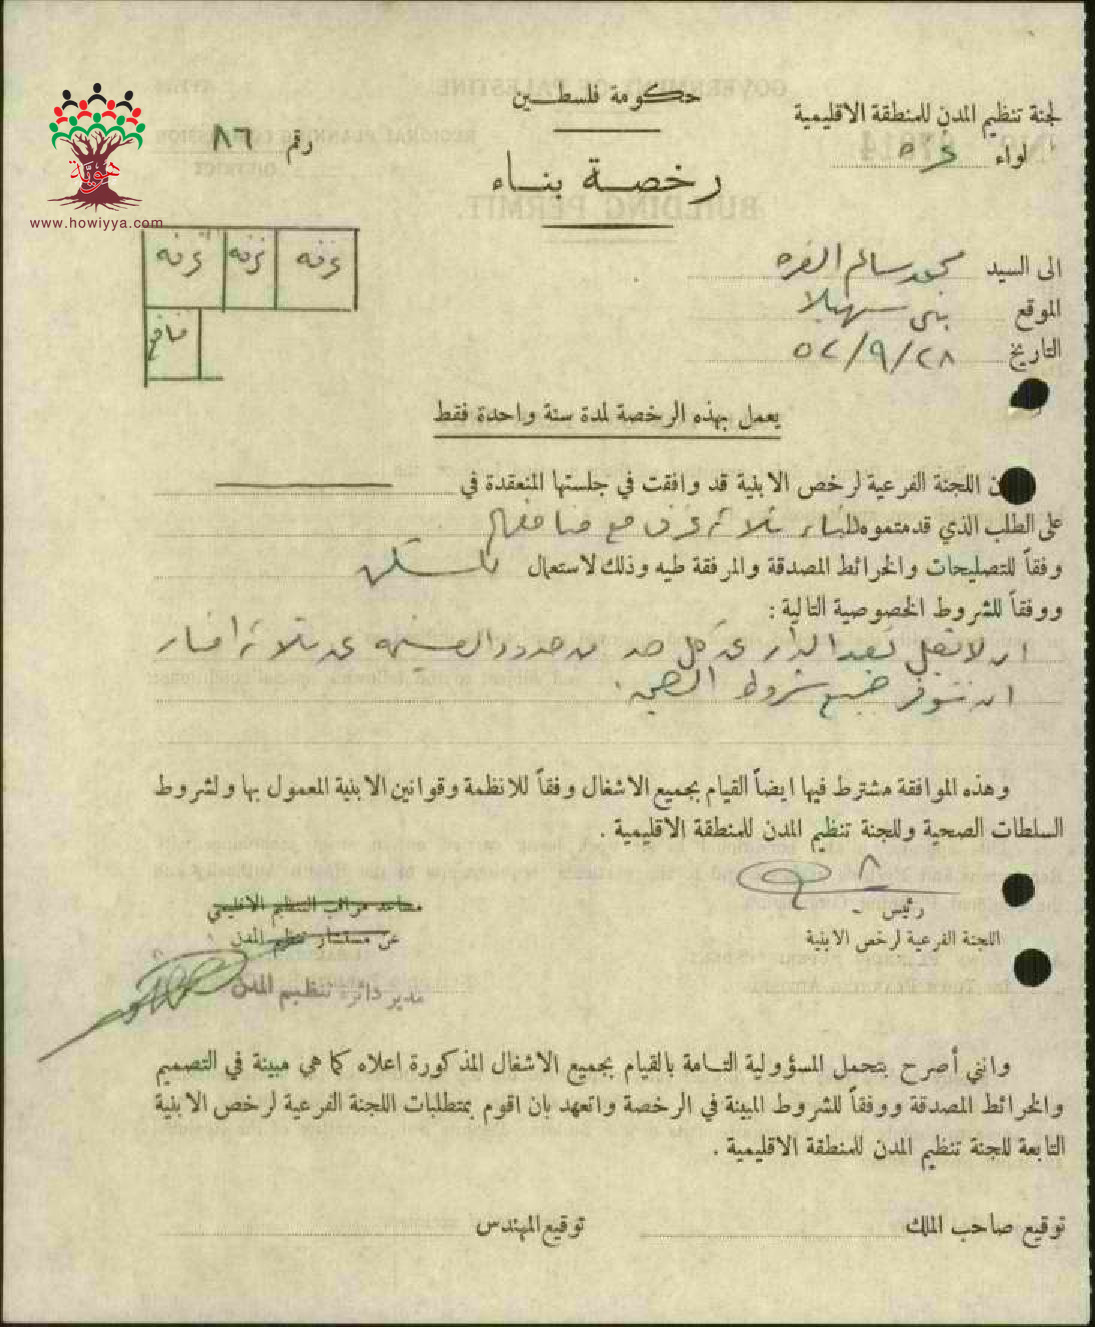 حكومة فلسطين
لجنة تنظيم المدن للمنطقة الاقليمية
لواء غزه
رقم ٨٦
رخصة بناء
هوية
www.howiyya.com
غرفه غرفه غرفه
منافع
الى السيد محمد سالم الفره
الموقع بني سهيلا
التاريخ ٢٨/٩/٥٤
يعمل بهذه الرخصة لمدة سنة واحدة فقط
اللجنة الفرعية لرخص الابنية قد وافقت في جلستها المنعقدة في
على الطلب الذي قدمتموه لبناء ثلاثة غرف مع منافعها
وفقاً للتصليحات والخرائط المصدقة والمرفقة طيه وذلك لاستعمال للسكن
ووفقاً للشروط الخصوصية التالية :
ان لا تقل بعد الدار عن كل حد من حدود القسيمه عن ثلاثة امتار
ان تتوفر جميع شروط الصحيه .
وهذه الموافقة مشترط فيها ايضاً القيام بجميع الاشغال وفقاً للانظمة وقوانين الابنية المعمول بها ولشروط
السلطات الصحية وللجنة تنظيم المدن للمنطقة الاقليمية .
رئيس
اللجنة الفرعية لرخص الابنية
مساعد مراقب التنظيم الاقليمي
عن مستشار تنظيم المدن
مدير دائرة تنظيم المدن
وانني أصرح بتحمل المسؤولية التامة بالقيام بجميع الاشغال المذكورة اعلاه كما هي مبينة في التصميم
والخرائط المصدقة ووفقاً للشروط المبينة في الرخصة واتعهد بان اقوم بمتطلبات اللجنة الفرعية لرخص الابنية
التابعة للجنة تنظيم المدن للمنطقة الاقليمية .
توقيع صاحب الملك
توقيع المهندس